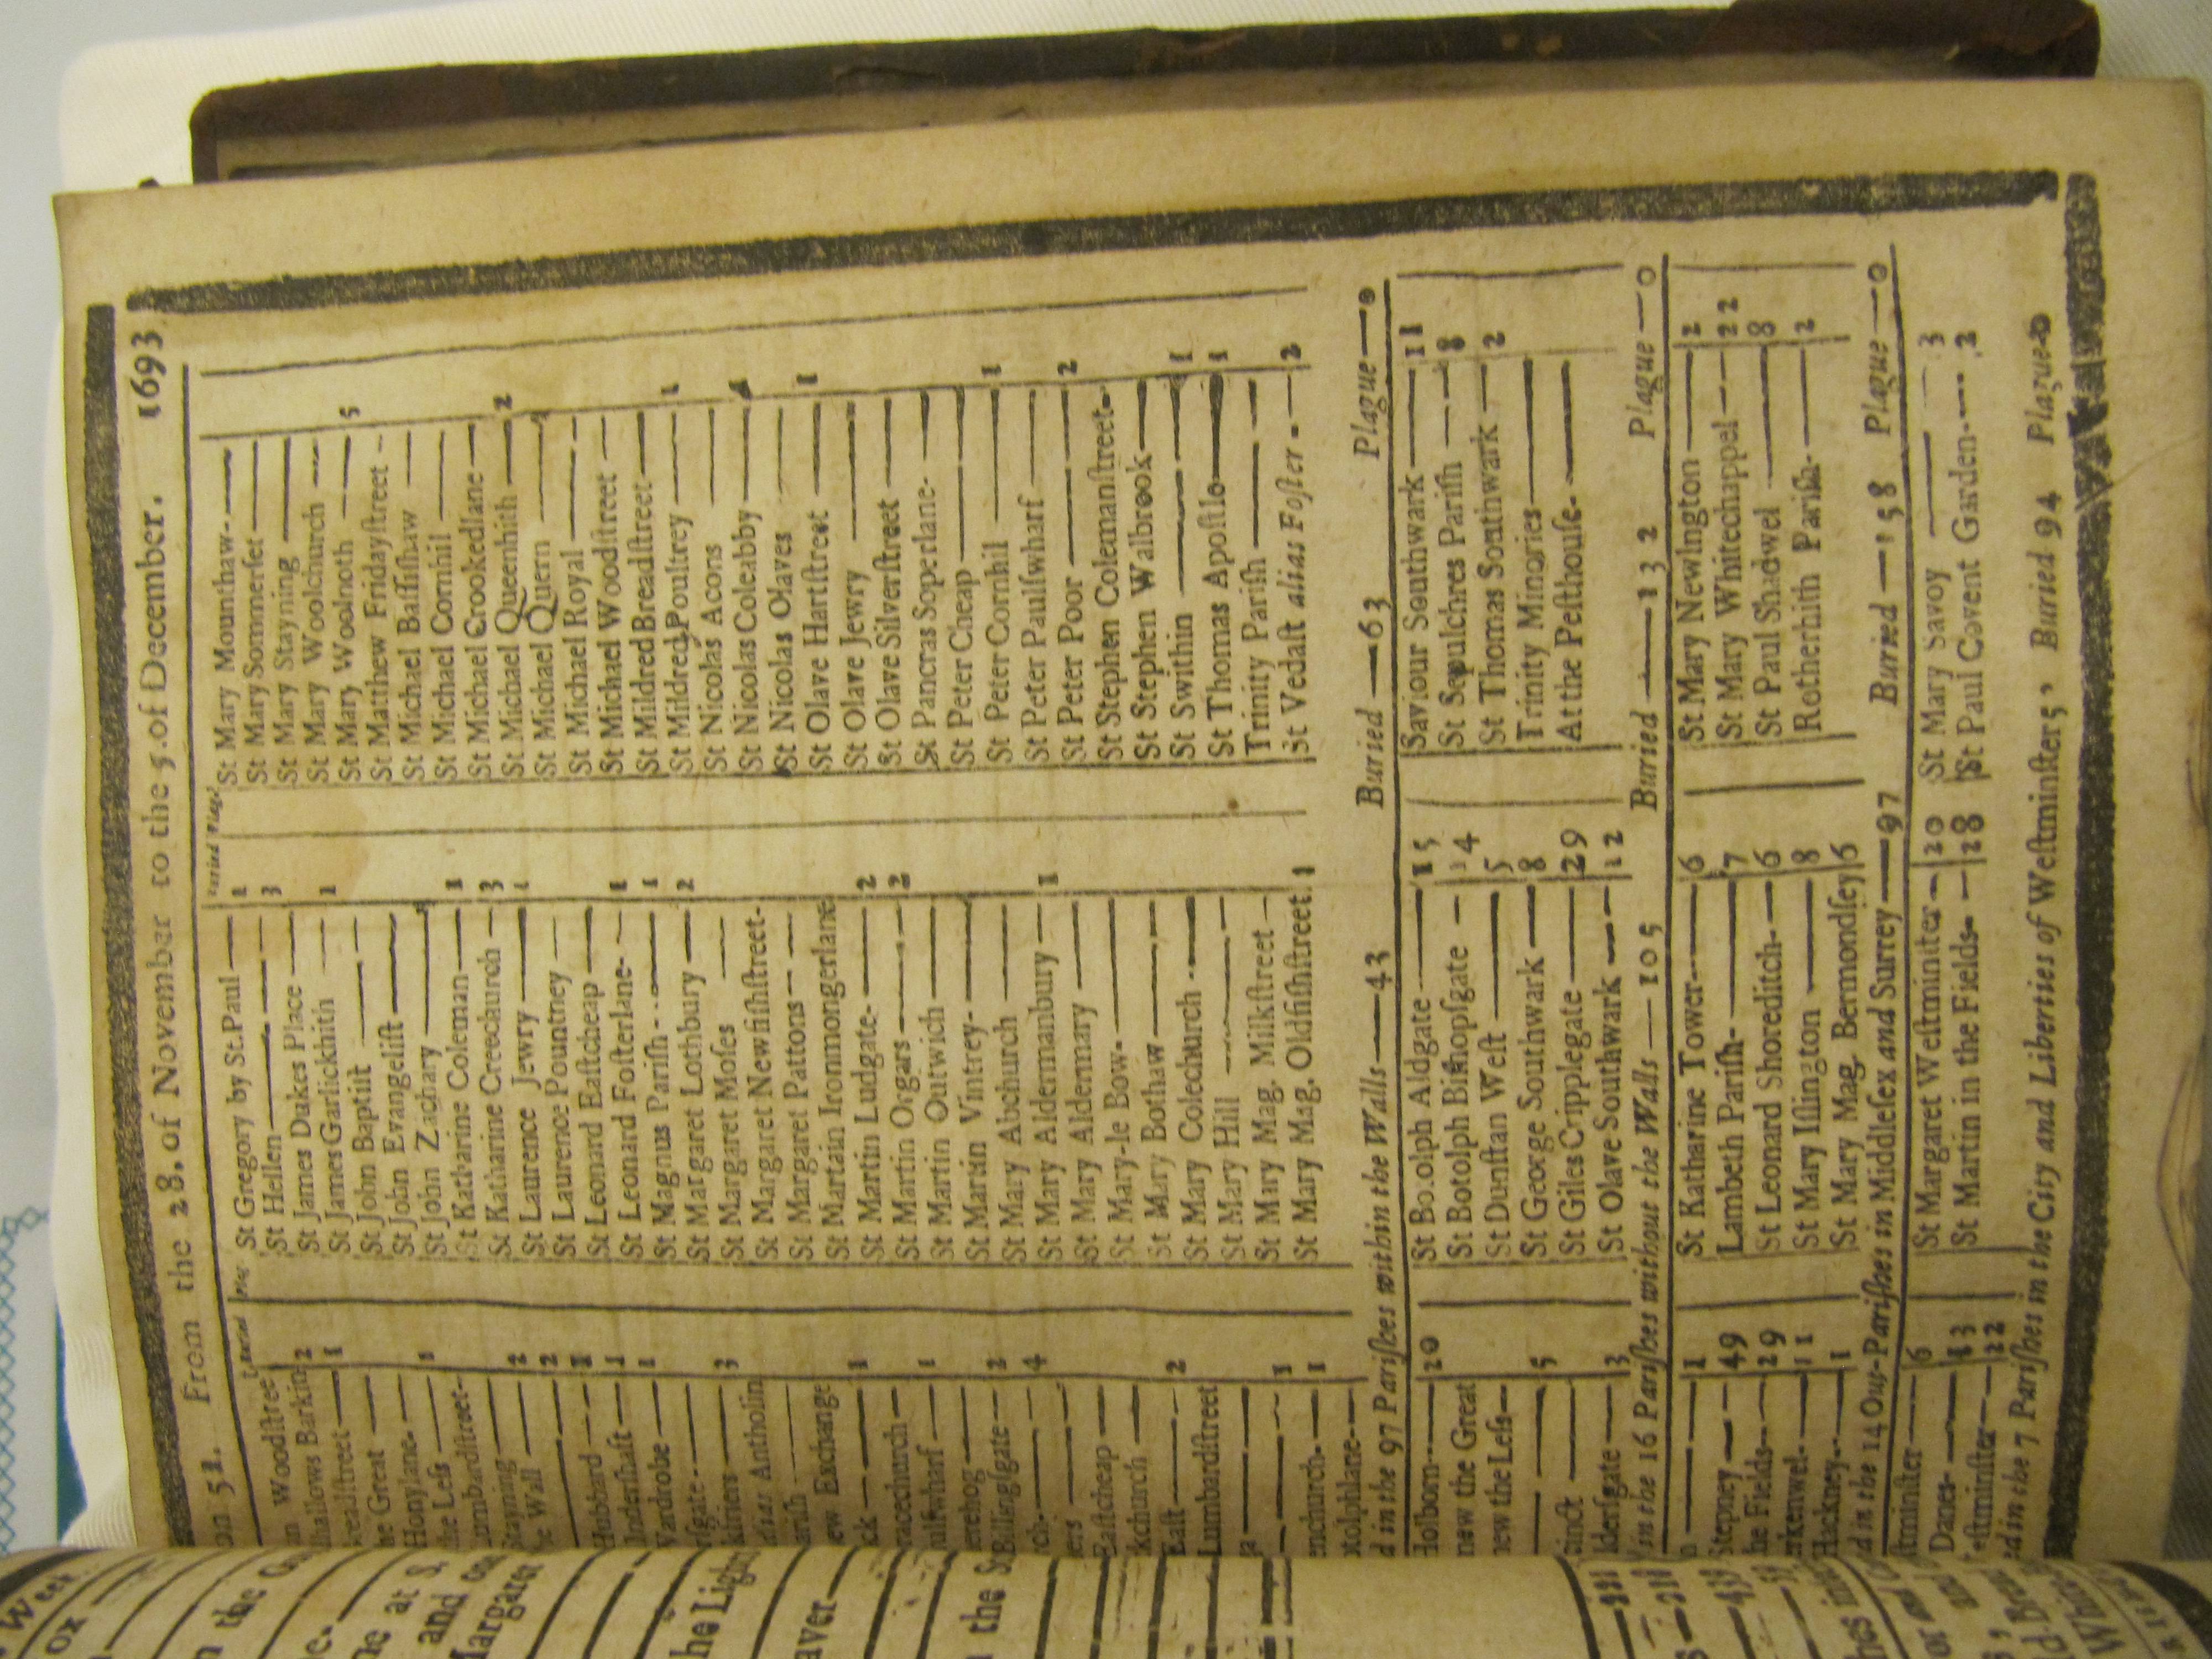 on 51. From the 28. of November to the 5. of December. 1693
Buried Plag
n Woodstreet
lhallows Barkin 2
readstreet 1
he Great
Honylane
the Less 1
Lumbardstreet
Stayning 2
he Wall 2
Hubbard 1
Undershaft 1
Wardrobe 1
sgate
kfriers 3
alias Antholin
arish
ew Exchange
ck 1
racechurch
ulswharf 1
erehog
Billingsgate 2
rch 4
ers
Eastcheap
kchurch
East 2
Lumbardstreet
1
enchurch 1
otolphlane
St Gregory by St.Paul 1
St Hellen 3
St James Dukes Place
St James Garlickhith 1
St John Baptist
St John Evangelist
St John Zachary
St Katharine Coleman 1
St Katharine Creechurch 3
St Laurence Jewry 1
St Laurence Pountney
St Leonard Eastcheap
St Leonard Fosterlane 1
St Magnus Parish 1
St Margaret Lothbury 2
St Margaret Moses
St Margaret Newfishstreet
St Margaret Pattons
St Martain Ironmongerlane
St Martin Ludgate 2
St Martin Orgars 2
St Martin Outwich
St Martin Vintrey
St Mary Abchurch
St Mary Aldermanbury 1
St Mary Aldermary
St Mary-le Bow
St Mary Bothaw
St Mary Colechurch
St Mary Hill
St Mary Mag. Milkstreet
St Mary Mag. Oldfishstreet 1
St Mary Mounthaw
St Mary Sommerset
St Mary Stayning
St Mary Woolchurch
St Mary Woolnoth 5
St Matthew Fridaystreet
St Michael Bassishaw
St Michael Cornhil
St Michael Crookedlane
St Michael Queenhith 2
St Michael Quern
St Michael Royal
St Michael Woodstreet
St Mildred Breadstreet
St Mildred Poultrey 1
St Nicolas Acons
St Nicolas Coleabby
St Nicolas Olaves
St Olave Hartstreet 1
St Olave Jewry
St Olave Silverstreet
St Pancras Soperlane
St Peter Cheap
St Peter Cornhil 1
St Peter Paulswharf
St Peter Poor 2
St Stephen Colemanstreet
St Stephen Walbrook
St Swithin 1
St Thomas Apostle 1
Trinity Parish
St Vedast alias Foster 2
d in the 97 Parishes within the Walls — 43 Buried — 63 Plague — 0
Holborn 20
new the Great
new the Less
5
cinct
ldersgate 3
St Botolph Aldgate 15
St Botolph Bishopsgate 14
St Dunstan West 5
St George Southwark 8
St Giles Cripplegate 29
St Olave Southwark 12
Saviour Southwark 11
St Sepulchres Parish 8
St Thomas Southwark 2
Trinity Minories
At the Pesthouse
in the 16 Parishes without the Walls — 105 Buried — 132 Plague — 0
1
Stepney 49
he Fields 29
erkenwel 11
Hackney 1
St Katharine Tower 6
Lambeth Parish 7
St Leonard Shoreditch 6
St Mary Islington 8
St Mary Mag. Bermondsey 6
St Mary Newington 12
St Mary Whitechappel 22
St Paul Shadwel 8
Rotherhith Parish 2
d in the 14 Out-Parishes in Middlesex and Surrey — 97 Buried — 158 Plague — 0
stminster 6
Danes 13
estminster 22
St Margaret Westminster 20
St Martin in the Fields 28
St Mary Savoy 3
St Paul Covent Garden 2
d in the 7 Parishes in the City and Liberties of Westminster, Buried 94 Plague 0
Week
ox
n the
and
Margaret
the Ligh
aver
the S
231
439
hes in
or and
d. Bread